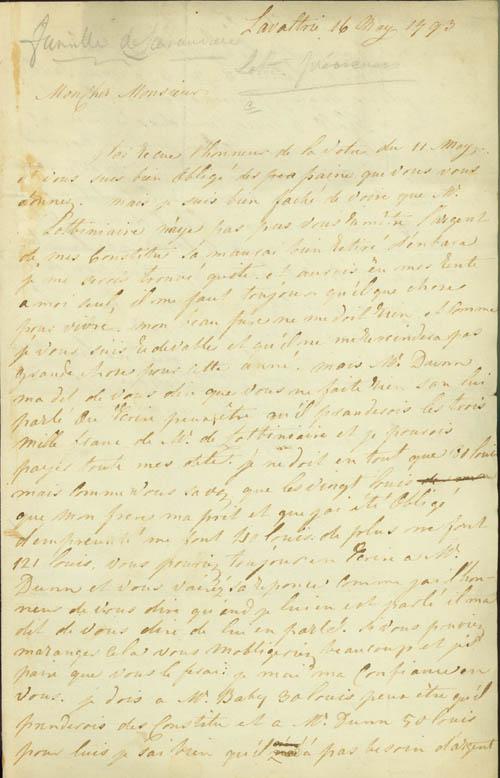 Lavaltrie 16 May 1793
Famille de Lanaudière
Mon cher Monsieur
Jai recue l'honneur de la votre du 11 May
et vous suis bien obligé des pennes que vous vous
donnez. mais je suis bien faché de voire que Mr.
Lotbiniaire naye pas pus vous remêtre l'argent
de mes Constitus sa maurai bien retiré d'enbara
je me serois trouvé quite et auroit eu mes rente
a moi seul, il me faut toujour quelque chose
pour vivre. mon beau frere ne me doit rien, et comme
je vous suis redevable et qu'il ne me reviendera pas
grande chose pour cette anné. mais Mr. Dunn
ma dit de vous dire que vous ne faite rien san lui
parlé ou ecrire peut etre qu'il prenderois les trois
mille franc de Mr. de Lotbiniaire et je pourois
payer toute mes dete. je ne doit en tout que 81 louis
mais comme vous savez que les vingt louis
que mon frere ma prit et que jai été obligé
d'emprunté me font 40 louis de plus me font
121 louis. vous pouriez toujour en ecrire a Mr.
Dunn et vous vairez sa reponce comme jai l'hon-
neur de vous dire quand je lui en est parlé il ma
dit de vous dire de lui en parlé. si vous pouvez
maranger cela vous mobligerez beaucoup et je
que vous le ferai. je mai ma confiance en
vous. je dois a Mr. Baby 30 louis peut etre qu'il
prenderois des Constitu et a Mr. Dunn 50 louis
pour luis je sai bien qu'il a pas besoin d'argent